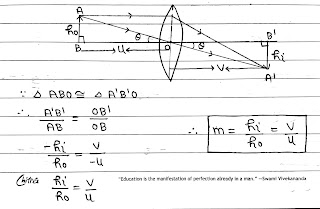 A
B'
h₀
θ
B
←u→
O
θ
hi
←v→
A'
∵ △ ABO ≅ △ A'B'O
∴ A'B'/AB = OB'/OB
-hi/h₀ = v/-u
hi/h₀ = v/u
∴ m = hi/h₀ = v/u
"Education is the manifestation of perfection already in a man." —Swami Vivekananda